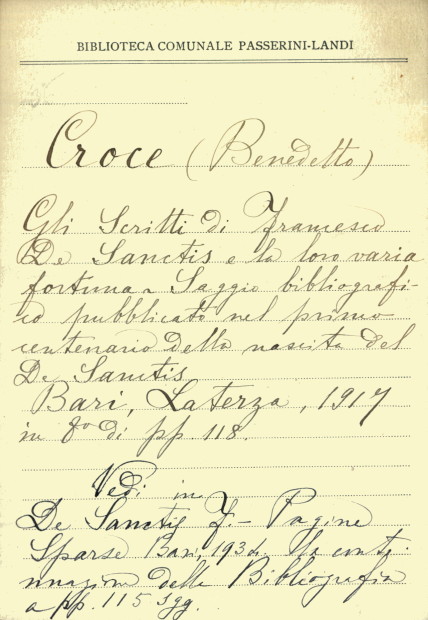 BIBLIOTECA COMUNALE PASSERINI-LANDI
Croce (Benedetto)
Gli Scritti di Francesco
De Sanctis e la loro varia
fortuna - Saggio bibliografi-
co pubblicato nel primo
centenario della nascita del
De Sanctis
Bari, Laterza, 1917
in 8º di pp. 118.
Vedi in
De Sanctis F. - Pagine
Sparse Bari, 1934. la conti-
nuazione della Bibliografia
a pp. 115 sgg.